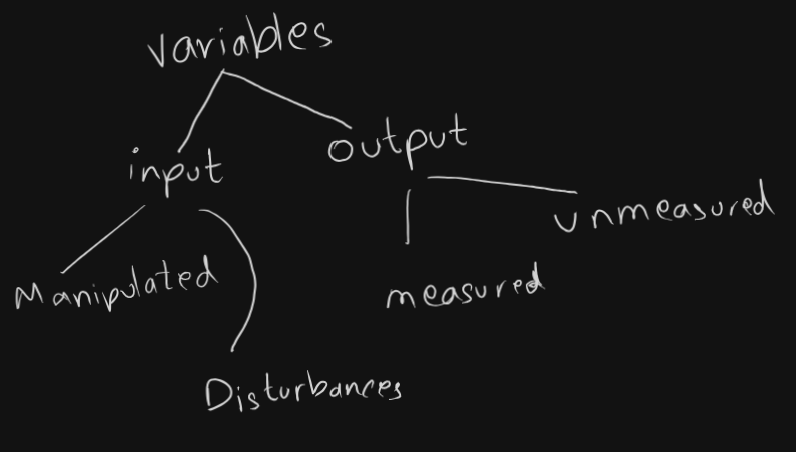 variables
input
output
Manipulated
Disturbances
measured
unmeasured